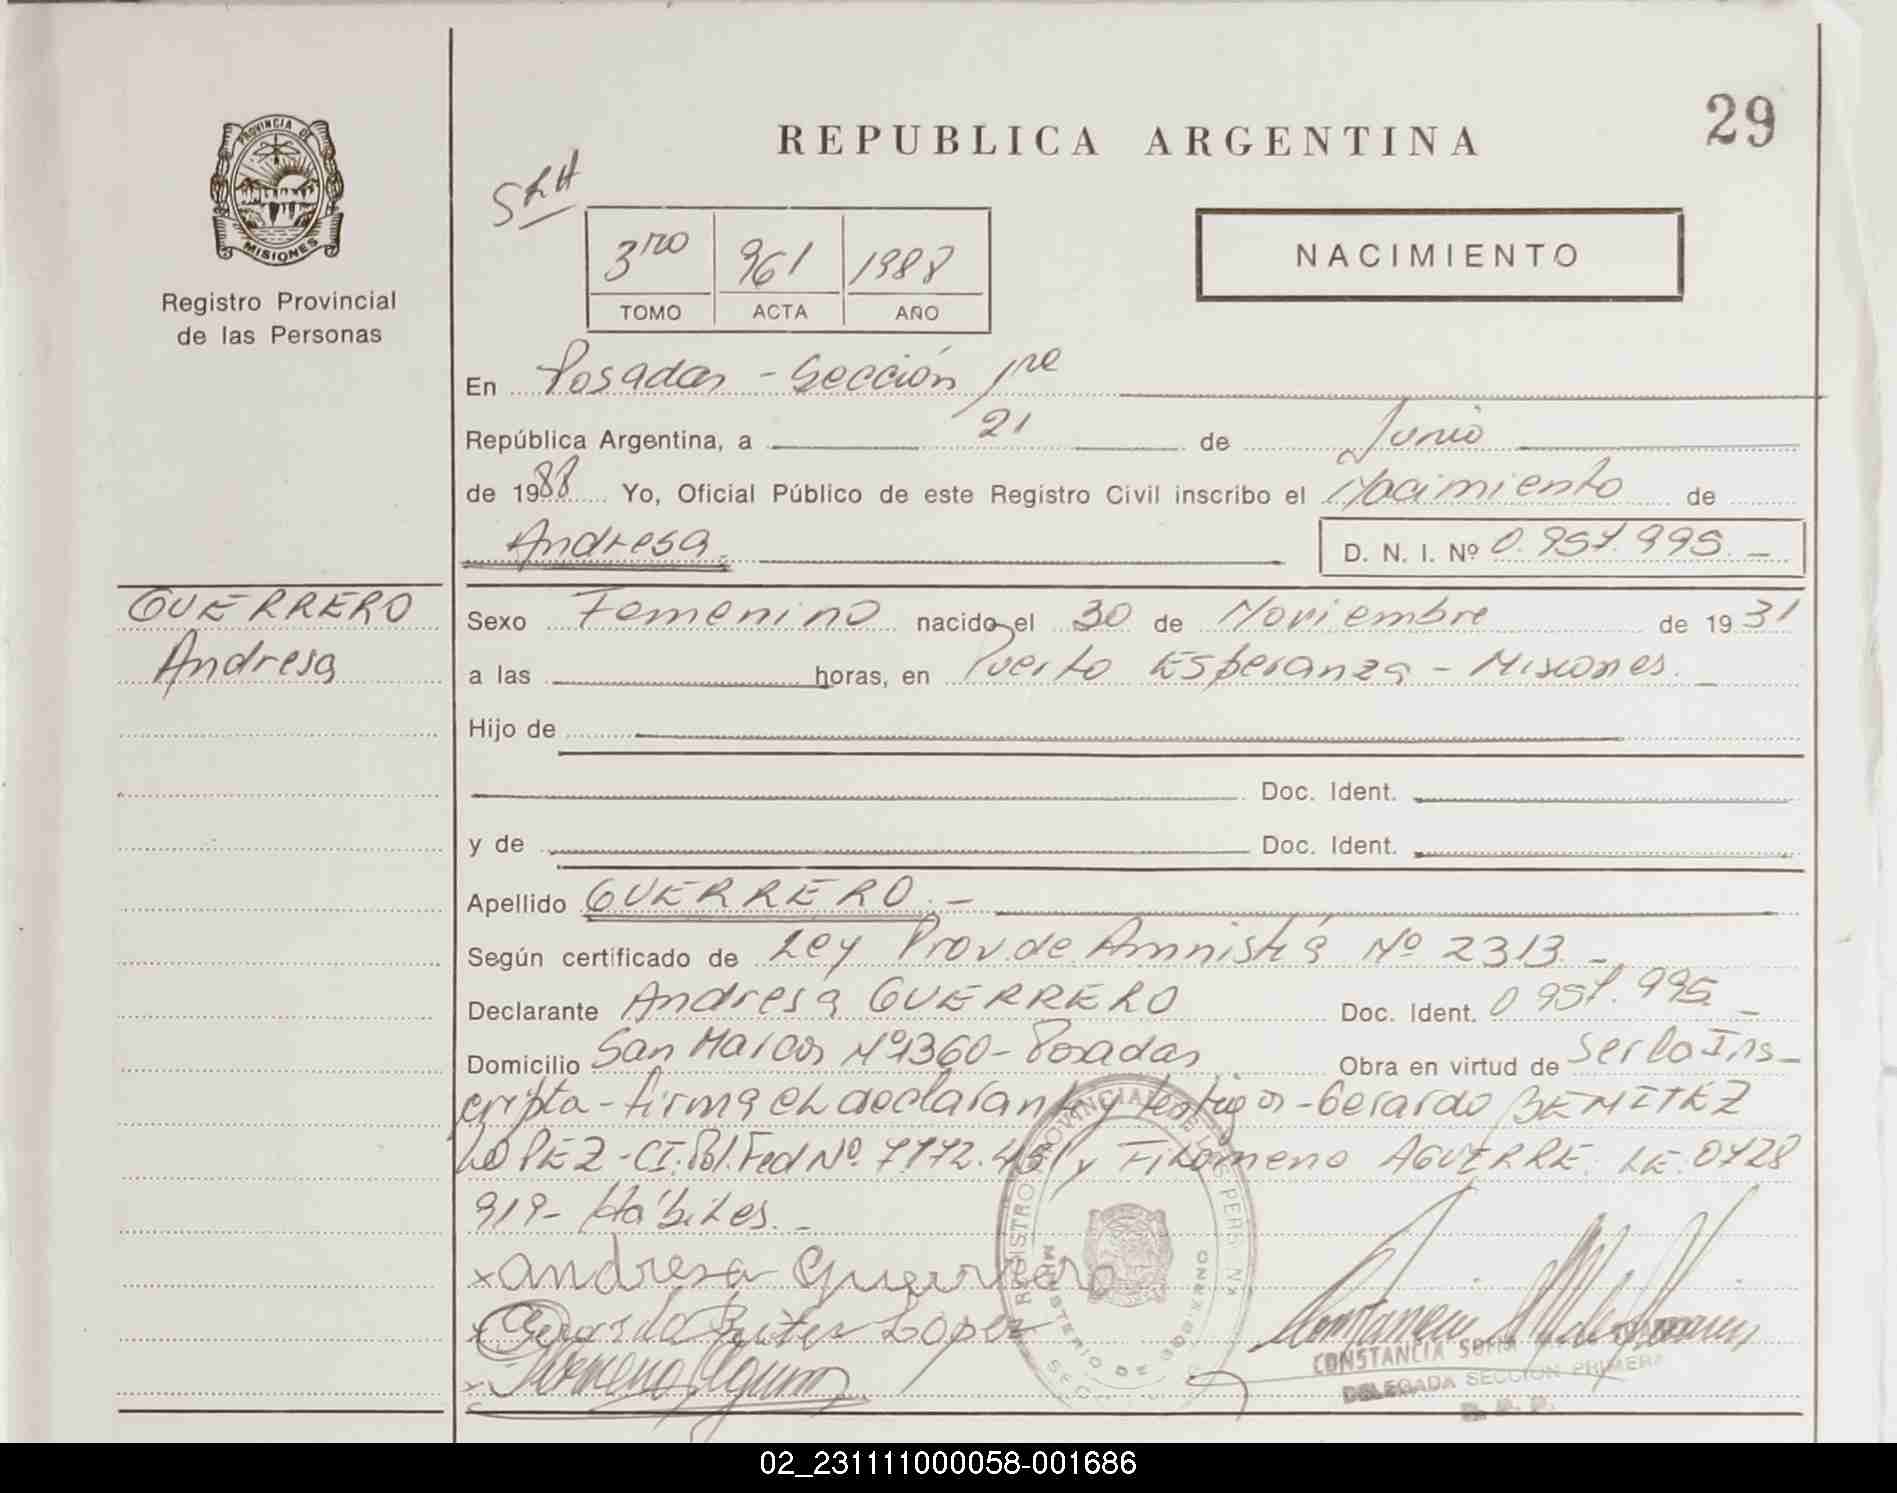 29
REPUBLICA ARGENTINA
PROVINCIA DE
MISIONES
Registro Provincial
de las Personas
3ro 961 1988
TOMO ACTA AÑO
NACIMIENTO
En Posadas - Sección 1ra
República Argentina, a 21 de Junio
de 1988 Yo, Oficial Público de este Registro Civil inscribo el Nacimiento de
Andresa. D. N. I. Nº 0.957.995. -
GUERRERO
Andresa
Sexo Femenino nacido el 30 de Noviembre de 1931
a las horas, en Puerto Esperanza - Misiones. -
Hijo de
Doc. Ident.
y de Doc. Ident.
Apellido GUERRERO. -
Según certificado de Ley Prov. de Amnistía Nº 2313 -
Declarante Andresa GUERRERO Doc. Ident. 0.957.995 -
Domicilio San Marcos Nº 1360 - Posadas Obra en virtud de Ser la Ins-
cripta - firma el declarante y testigos - Gerardo BENITEZ
LOPEZ - CI. Pol. Fed Nº 7172.451 y Filomeno AGUIRRE. LE. 0728
919 - Hábiles. -
x Andresa Guerrero
x Gerardo Benitez Lopez
x Filomeno Aguirre
REGISTRO PROVINCIAL DE LAS PERSONAS
MINISTERIO DE GOBIERNO
CONSTANCIA SOFIA
DELEGADA SECCION PRIMERA
R. P. P.
02_231111000058-001686